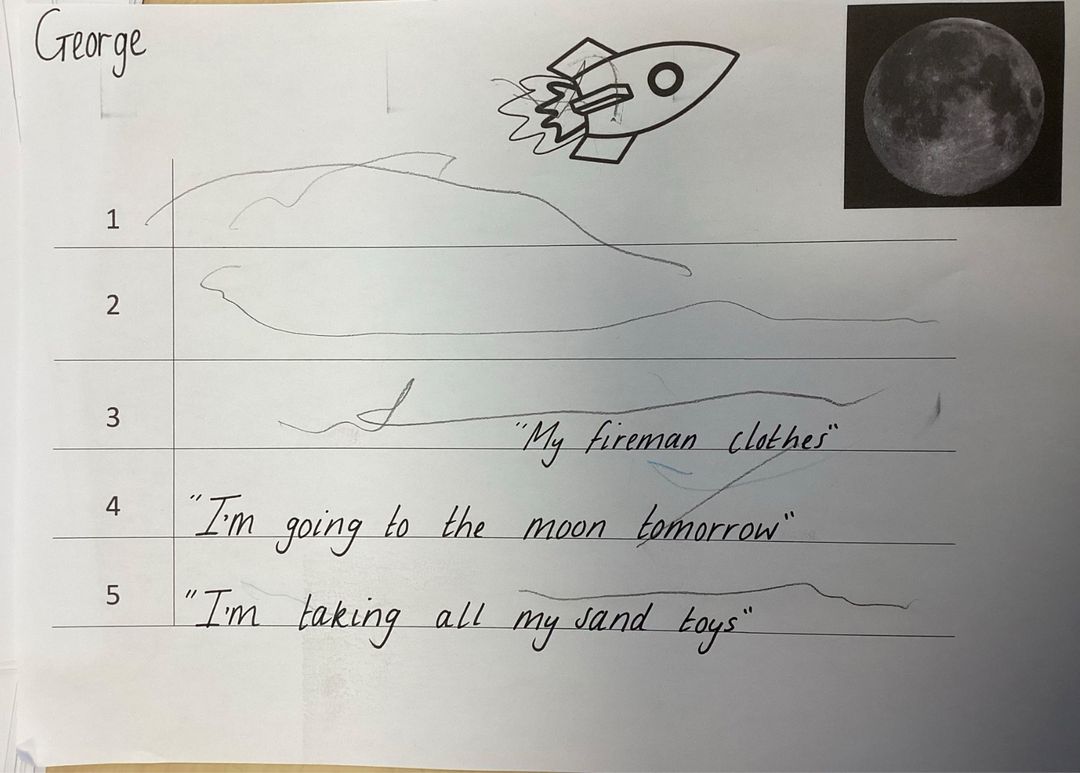 George
1
2
3
"My fireman clothes"
4 "I'm going to the moon tomorrow"
5 "I'm taking all my sand toys"